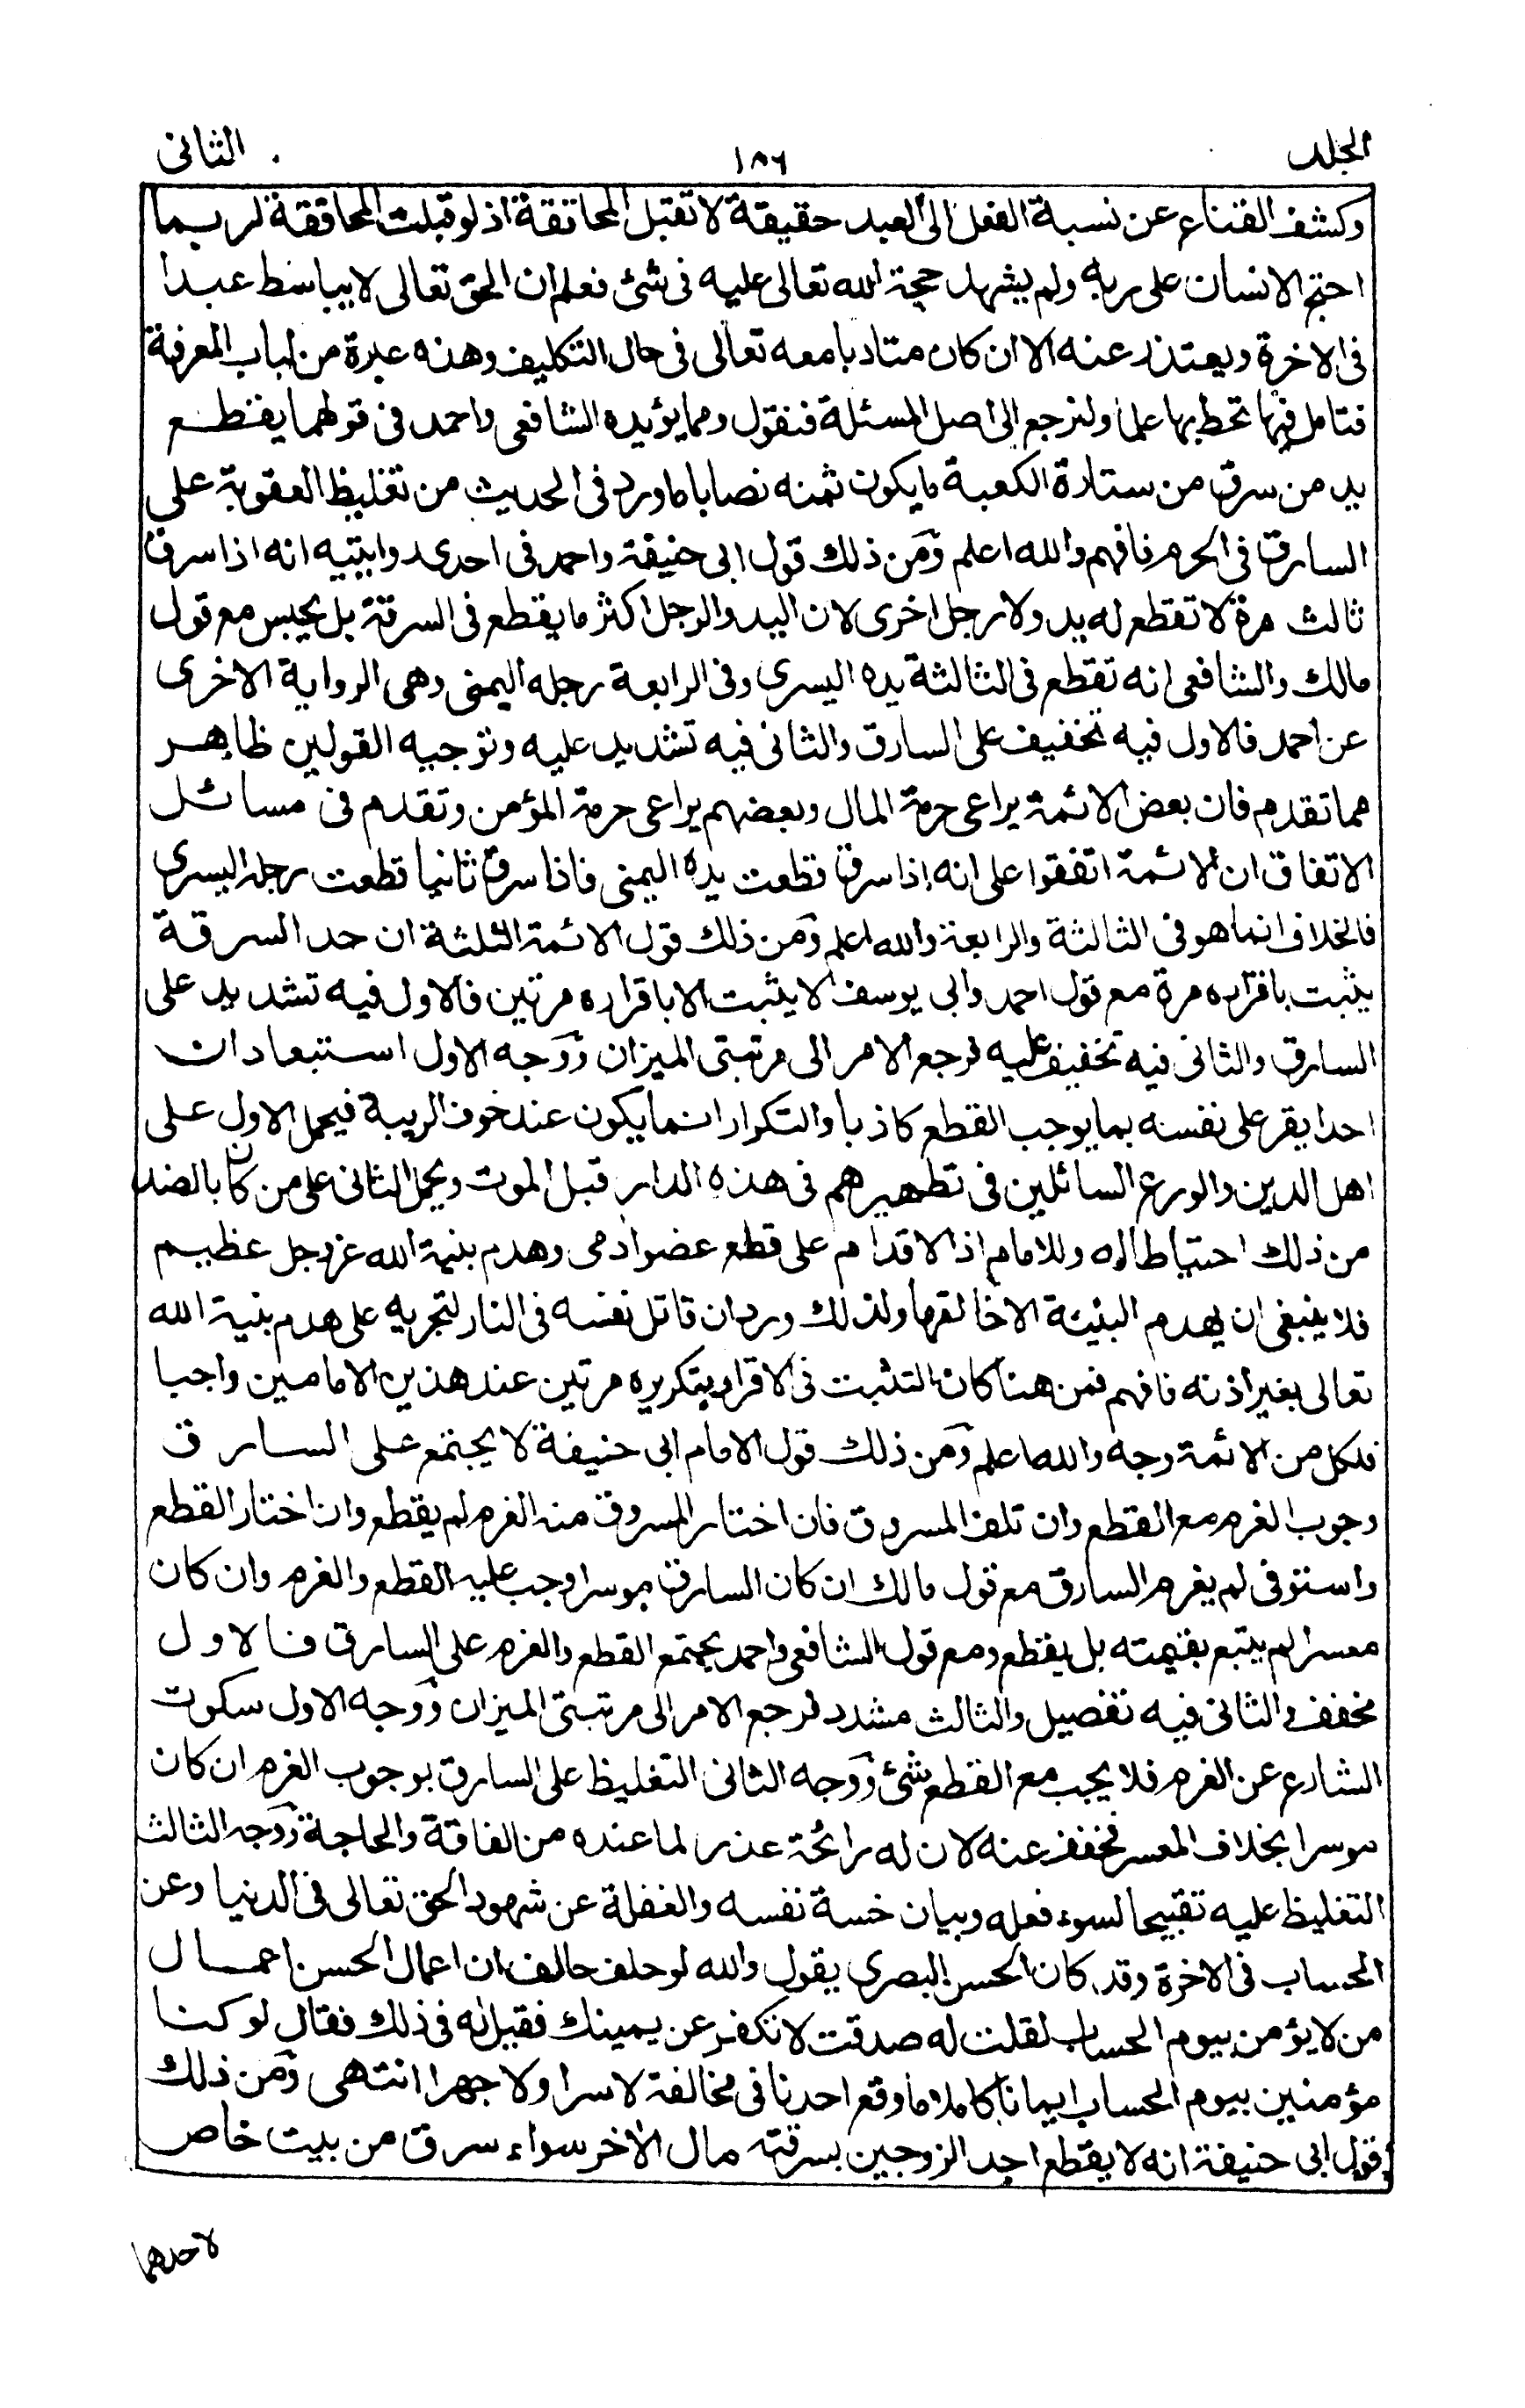 المجلد
١٨٦
الثانى
وكشف القناع عن نسبة الفعل الى العبد حقيقة لا تقبل المحاققة اذ لو قبلت المحاققة لربما
احتج الانسان على ربه ولم يشهد حجة الله تعالى عليه فى شئ فعلم ان الحق تعالى لا يباسط عبدا
فى الاخرة ويعتذر عنه الا ان كان متادبا معه تعالى فى حال التكليف وهذه عبرة من لباب المعرفة
فتامل فيها تحط بها علما ولنرجع الى اصل المسئلة فنقول ومما يؤيده الشافعى واحمد فى قولهما يقطع
يد من سرق من ستارة الكعبة ما يكون ثمنه نصابا ما ورد فى الحديث من تغليظ العقوبة على
السارق فى الحرم فافهم والله اعلم ومن ذلك قول ابى حنيفة واحمد فى احدى روايتيه انه اذا سرق
ثالث مرة لا تقطع له يد ولا رجل اخرى لان اليد والرجل اكثر ما يقطع فى السرقة بل يحبس مع قول
مالك والشافعى انه تقطع فى الثالثة يده اليسرى وفى الرابعة رجله اليمنى وهى الرواية الاخرى
عن احمد فالاول فيه تخفيف على السارق والثانى فيه تشديد عليه وتوجيه القولين ظاهر
مما تقدم فان بعض الائمة يراعى حرمة المال وبعضهم يراعى حرمة المؤمن وتقدم فى مسائل
الاتفاق ان الائمة اتفقوا على انه اذا سرق قطعت يده اليمنى فاذا سرق ثانيا قطعت رجله اليسرى
فالخلاف انما هو فى الثالثة والرابعة والله اعلم ومن ذلك قول الائمة الثلثة ان حد السرقة
يثبت باقراره مرة مع قول احمد وابى يوسف لا يثبت الا باقراره مرتين فالاول فيه تشديد على
السارق والثانى فيه تخفيف عليه فرجع الامر الى مرتبتى الميزان ووجه الاول استبعاد ان
احدا يقر على نفسه بما يوجب القطع كاذبا والتكرار انما يكون عند خوف الريبة فيحمل الاول على
اهل الدين والورع السائلين فى تطهيرهم فى هذه الدار قبل الموت ويحمل الثانى على من كان بالضد
من ذلك احتياطا له وللامام اذ الاقدام على قطع عضو ادمى وهدم بنية الله عز وجل عظيم
فلا ينبغى ان يهدم البنية الا خالقها ولذلك ورد ان قاتل نفسه فى النار لتجريه على هدم بنية الله
تعالى بغير اذنه فافهم فمن هنا كان التثبت فى الاقرار بتكريره مرتين عند هذين الامامين واجبا
فلكل من الائمة وجه والله اعلم ومن ذلك قول الامام ابى حنيفة لا يجتمع على السارق
وجوب الغرم مع القطع وان تلف المسروق فان اختار المسروق منه الغرم لم يقطع وان اختار القطع
واستوفى لم يغرم السارق مع قول مالك ان كان السارق موسرا وجب عليه القطع والغرم وان كان
معسرا لم يتبع بقيمته بل يقطع ومع قول الشافعى واحمد يجتمع القطع والغرم على السارق فالاول
مخفف والثانى فيه تفصيل والثالث مشدد فرجع الامر الى مرتبتى الميزان ووجه الاول سكوت
الشارع عن الغرم فلا يجب مع القطع شئ ووجه الثانى التغليظ على السارق بوجوب الغرم ان كان
موسرا بخلاف المعسر فخفف عنه لان له رائحة عذر لما عنده من الفاقة والحاجة ووجه الثالث
التغليظ عليه تقبيحا لسوء فعله وبيان خسة نفسه والغفلة عن شهود الحق تعالى فى الدنيا وعن
الحساب فى الاخرة وقد كان الحسن البصرى يقول والله لو حلف حالف ان اعمال الحسن اعمال
من لا يؤمن بيوم الحساب لقلت له صدقت لا تكفر عن يمينك فقيل له فى ذلك فقال لو كنا
مؤمنين بيوم الحساب ايمانا كاملا ما وقع احدنا فى مخالفة لا سرا ولا جهرا انتهى ومن ذلك
قول ابى حنيفة انه لا يقطع احد الزوجين بسرقة مال الاخر سواء سرق من بيت خاص
لاحدهما